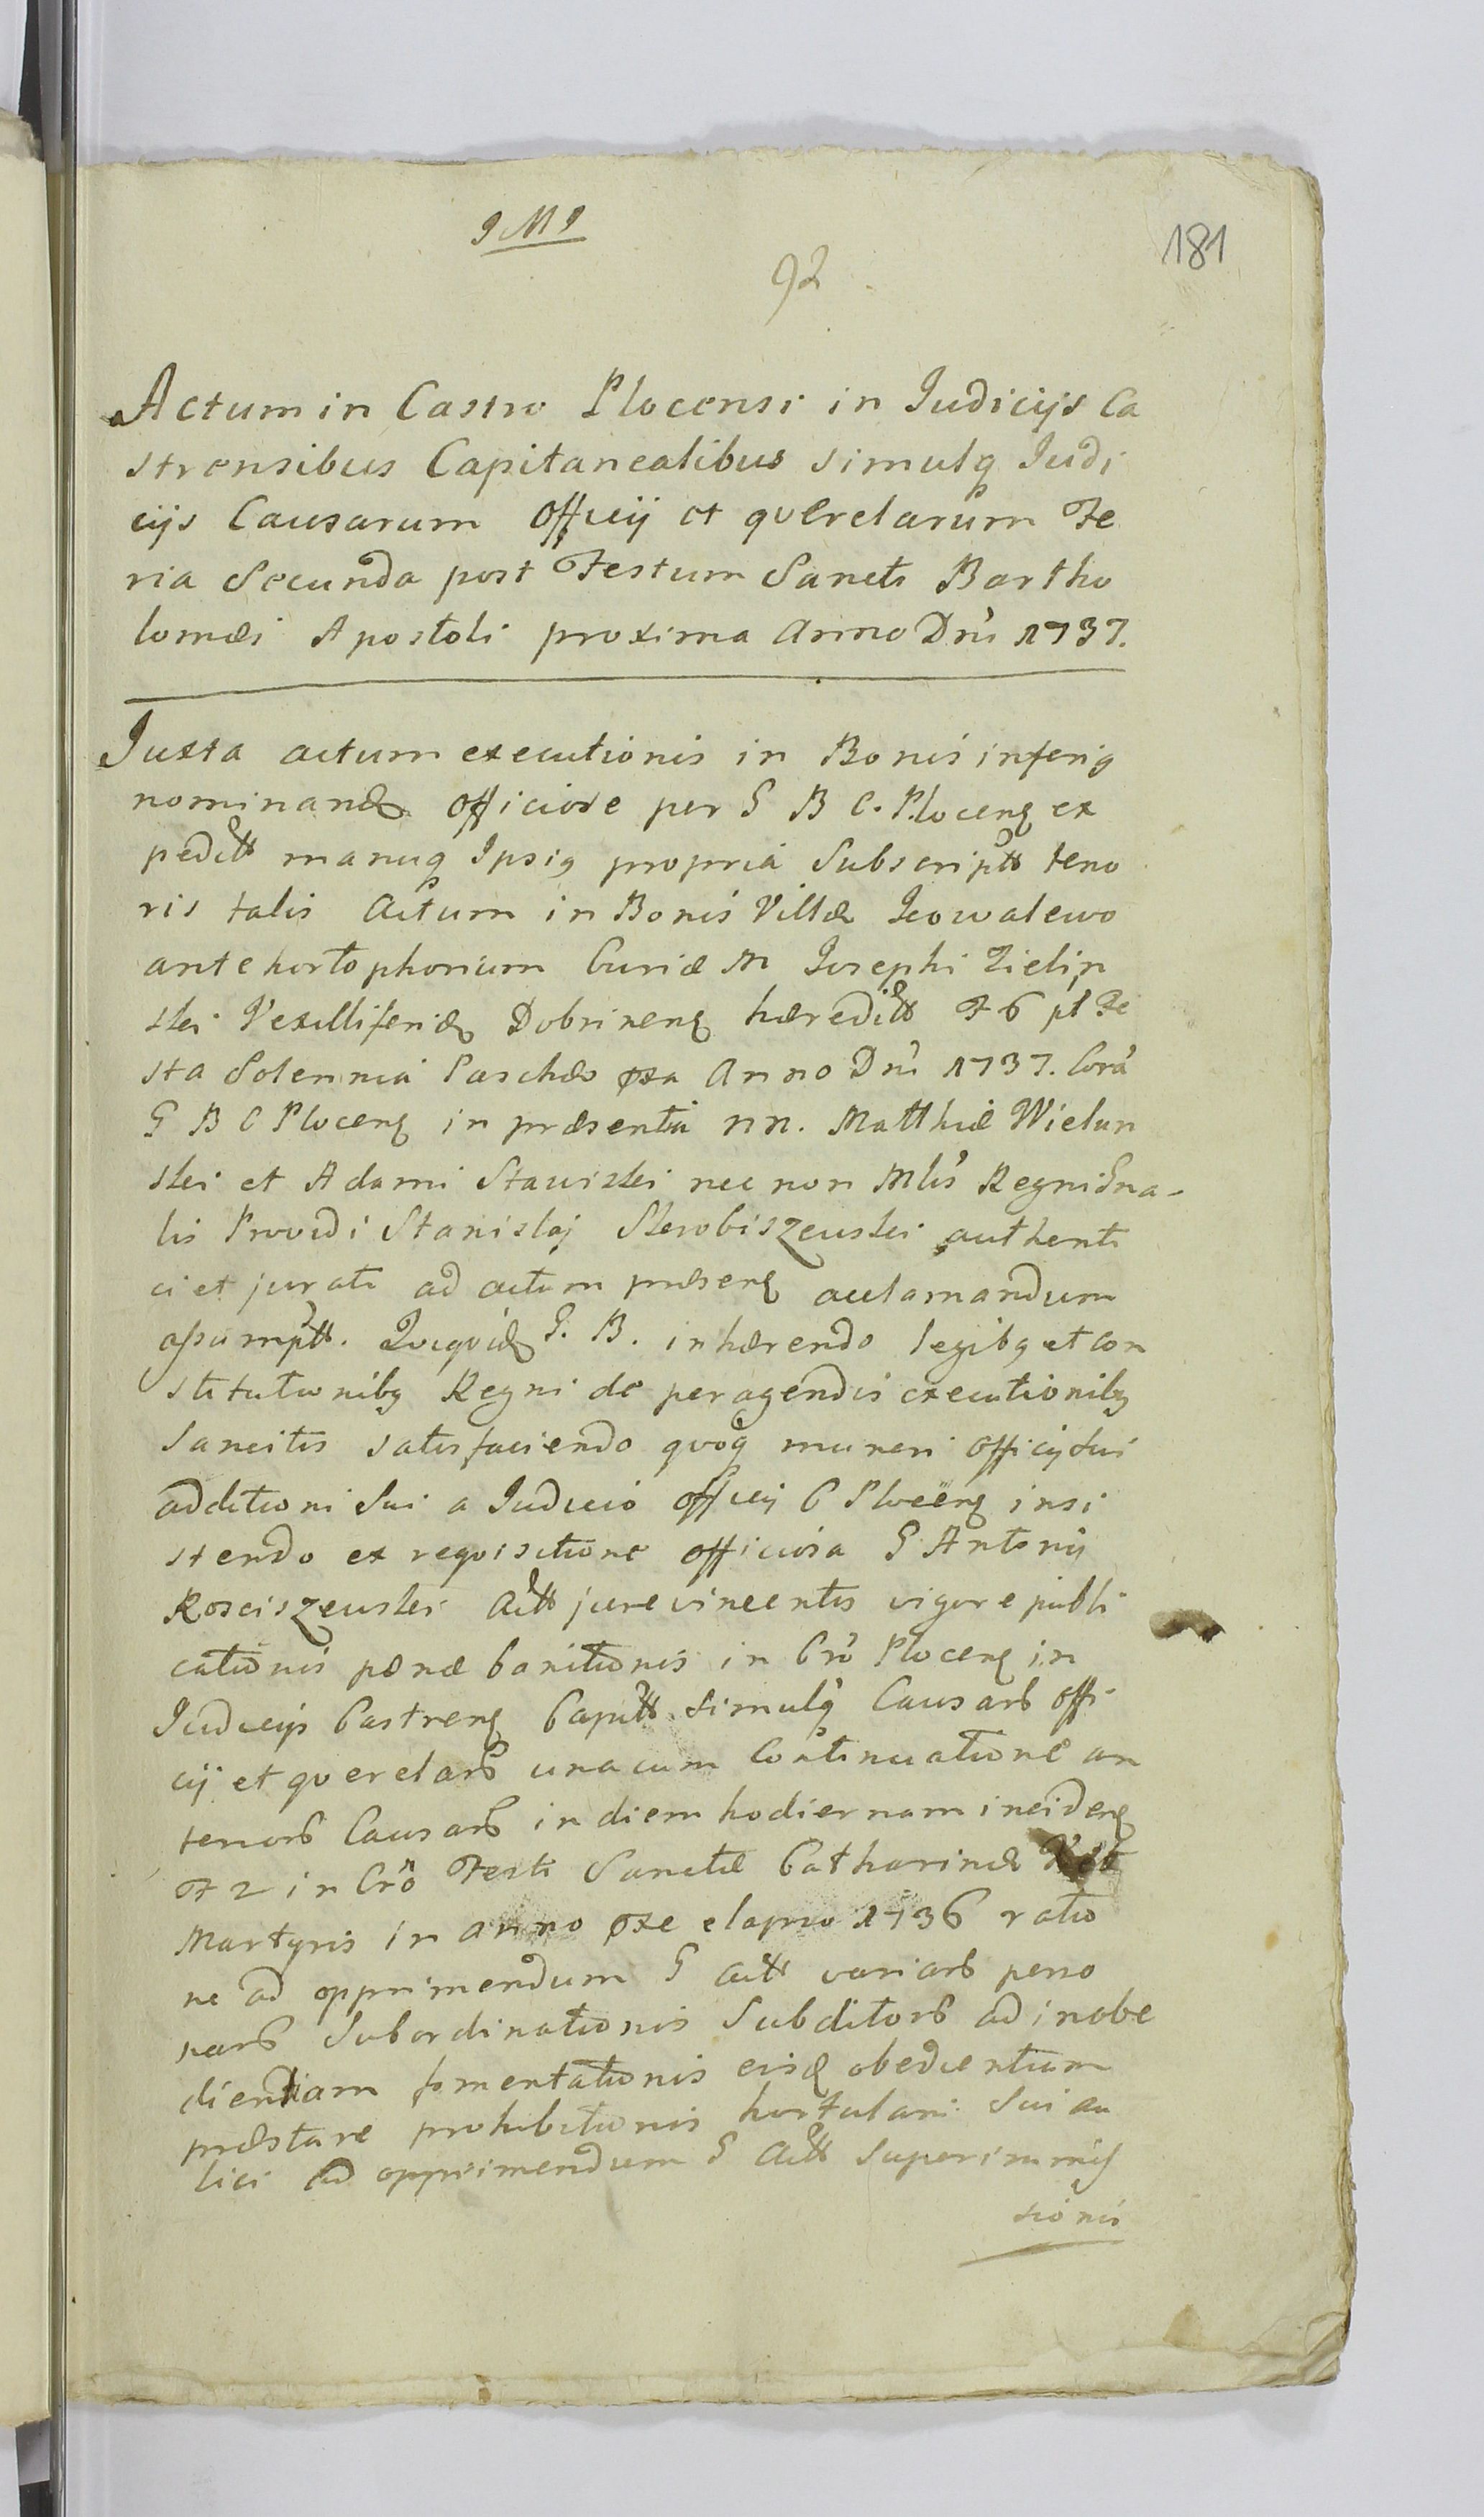 J M J
181
92
Actum in Castro Plocensi in Judicijs Ca
strensibus Capitanealibus simulq Judi
cijs Causarum officij et querelarum Fe
ria Secunda post Festum Sancti Bartho
lomæi Apostoli proxima Anno Dni 1737.
Juxta actum executionis in Bonis inferig
nominand officiose per G B C. Ploceng ex
peditt manuq Ipsig propria Subscriptt teno
ris talis Actum in Bonis Villæ Kowalewo
ante hortophorium Curiæ M Josephi Zielin
skei Vexilliferid Dobrineng hæreditt F 6 pt Fe
sta Solennia Paschæ pxa Anno Dni 1737. Cora
G B C Ploceng in præsentia nn. Matthiæ Wielun
skei et Adami Stawiskei nec non Mlis Regni Gna-
lis Providi Stanislaj Skrobiszewskei authenti
ci et jurati ad actum præseng acclamandum
assumptt. Quiquid G. B. inhærendo legibg et con
stitutionibg Regni de peragendis executionibg
Sancitis satisfaciendo quoq muneri officij sui
additioni Sui a Judicio officij C Ploceng insi
stendo ex requisitione officiosa G Antonij
Rosciszewskei Actt jure vincentis vigore publi
cationis pænæ banitionis in Cro Ploceng in
Judicijs Castreng Capitt simulq Causarb offi
cij et querelarb una cum Continuatione an
teriorb Causarb in diem hodiernam incideng
F 2 in Cro Festi Sanctæ Catharinæ
Martyris in anno pxe elapso 1736 ratio
ne ad opprimendum G Actt variarb perso
narb Subordinationis Subditorb ad inobe
dientiam fomentationis eisd obedientiam
præstare prohibitionis hortulani Sui au
lici ad opprimendum G Actt Superimmis
sionis